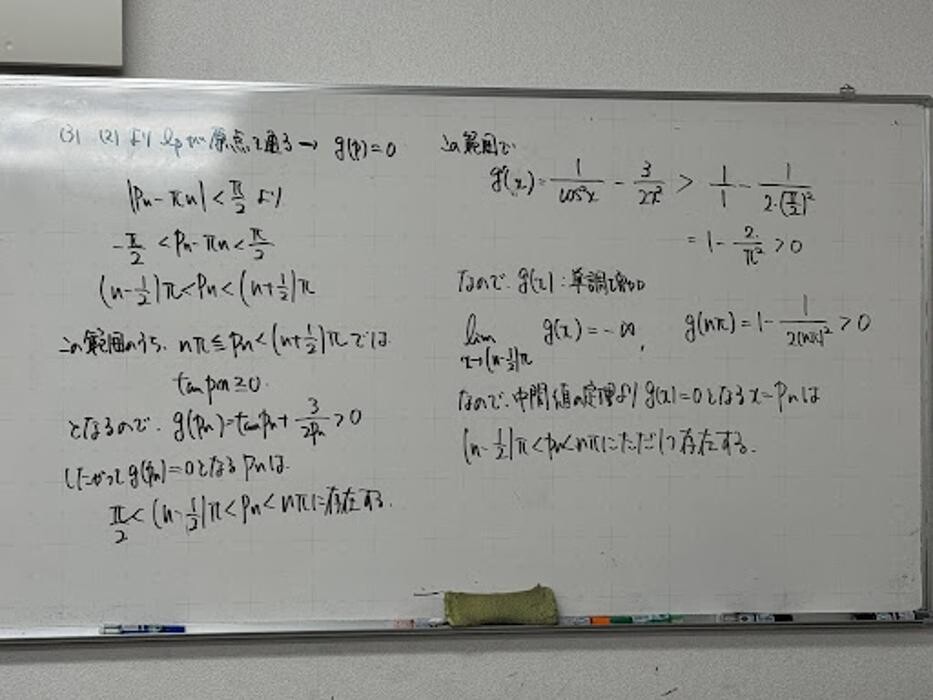 (3) (2)より lpが原点を通る → g(p)=0
|Pn-πn|<π/2 より
-π/2 <Pn-πn<π/2
(n-1/2)π<Pn<(n+1/2)π
この範囲のうち、nπ≦Pn<(n+1/2)πでは
tanpn≥0.
となるので、g(Pn)=tanPn+3/2Pn>0
したがってg(Pn)=0となるPnは
π/2<(n-1/2)π<Pn<nπに存在する.
この範囲で
g'(x)=1/cos²x - 3/2x² > 1/1 - 1/2·(π/2)²
=1-2/π²>0
なので、g(x):単調増加
lim x→(n-1/2)π g(x)=-∞, g(nπ)=1-1/2(nπ)²>0
なので、中間値の定理よりg(x)=0となるx=Pnは
(n-1/2)π<Pn<nπにただ1つ存在する.